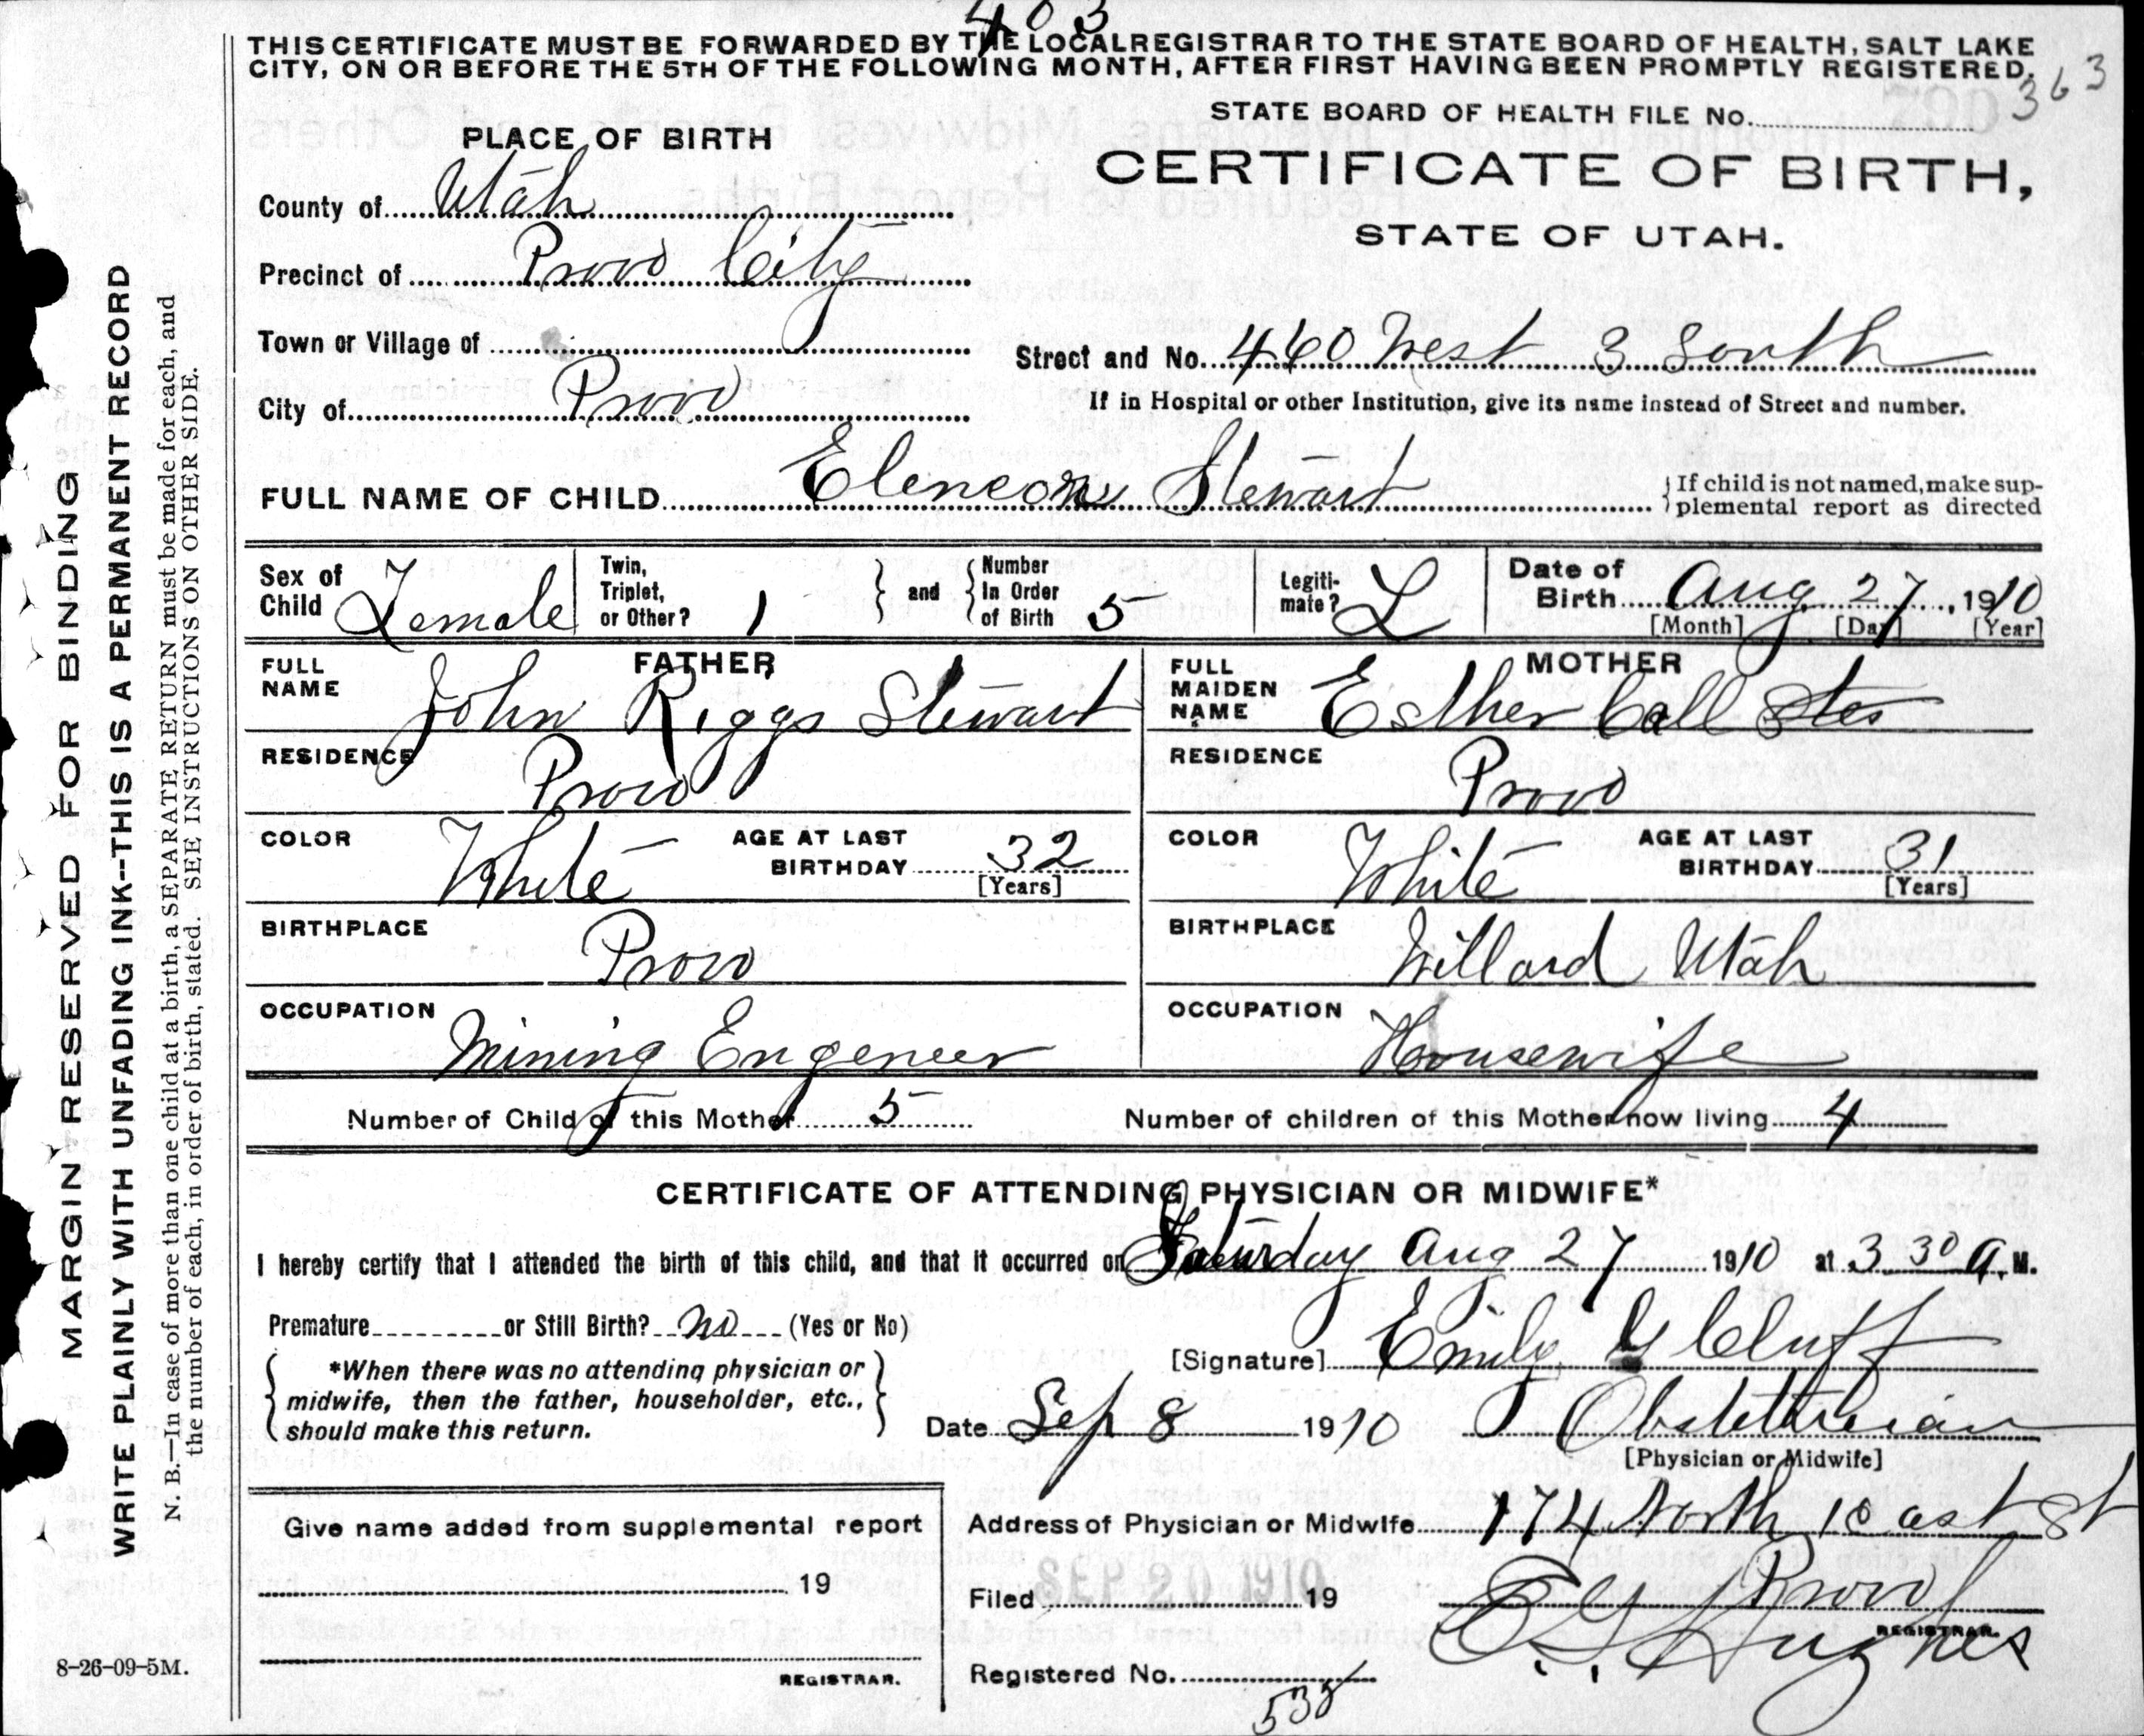 403
THIS CERTIFICATE MUST BE FORWARDED BY THE LOCAL REGISTRAR TO THE STATE BOARD OF HEALTH, SALT LAKE
CITY, ON OR BEFORE THE 5TH OF THE FOLLOWING MONTH, AFTER FIRST HAVING BEEN PROMPTLY REGISTERED.
363
STATE BOARD OF HEALTH FILE No.
CERTIFICATE OF BIRTH,
STATE OF UTAH.
PLACE OF BIRTH
County of Utah
Precinct of Provo City
Town or Village of
Street and No. 460 West 3 South
City of Provo
If in Hospital or other Institution, give its name instead of Street and number.
FULL NAME OF CHILD Stewart
If child is not named, make sup-
plemental report as directed
Sex of Child Female
Twin, Triplet, or Other? 1
and
Number In Order of Birth 5
Legiti-mate? L
Date of Birth Aug 27, 1910
[Month] [Day] [Year]
FATHER
FULL NAME John Riggs Stewart
RESIDENCE Provo
COLOR White
AGE AT LAST BIRTHDAY 32
[Years]
BIRTHPLACE Provo
OCCUPATION Mining Engeneer
MOTHER
FULL MAIDEN NAME Esther Call
RESIDENCE Provo
COLOR White
AGE AT LAST BIRTHDAY 31
[Years]
BIRTHPLACE Willard Utah
OCCUPATION Housewife
Number of Child of this Mother 5
Number of children of this Mother now living 4
CERTIFICATE OF ATTENDING PHYSICIAN OR MIDWIFE*
I hereby certify that I attended the birth of this child, and that it occurred on Saturday Aug 27 1910 at 3 30 A. M.
Premature or Still Birth? no (Yes or No)
*When there was no attending physician or
midwife, then the father, householder, etc.,
should make this return.
[Signature] Emily G Cluff
Date Sep 8 1910
Obstetrician
[Physician or Midwife]
Address of Physician or Midwife 174 North 10 East St
Provo
Give name added from supplemental report
19
REGISTRAR.
Filed SEP 20 1910 19
E. G. Hughes
REGISTRAR.
Registered No.
535
8-26-09-5M.
MARGIN RESERVED FOR BINDING
WRITE PLAINLY WITH UNFADING INK--THIS IS A PERMANENT RECORD
N. B.—In case of more than one child at a birth, a SEPARATE RETURN must be made for each, and
the number of each, in order of birth, stated. SEE INSTRUCTIONS ON OTHER SIDE.